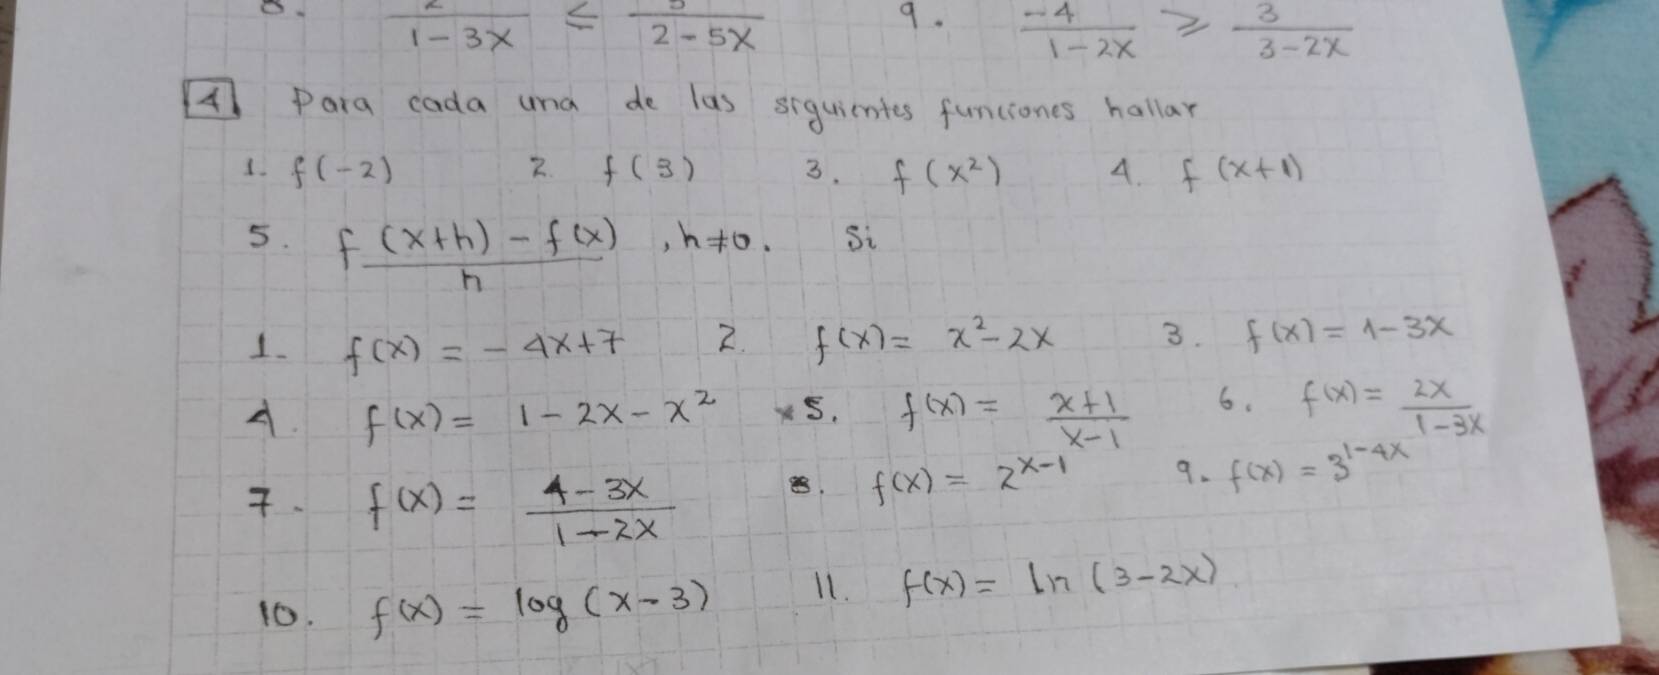 8. 2/(1-3x) ≤ 5/(2-5x) 9. -4/(1-2x) ≥ 3/(3-2x)
4 Para cada una de las siguientes funciones hallar
1. f(-2) 2. f(3) 3. f(x²) 4. f(x+1)
5. f(x+h)-f(x)/h , h≠0. Si
1. f(x) = -4x+7 2. f(x) = x²-2x 3. f(x) = 1-3x
4. f(x) = 1-2x-x² *5. f(x) = (x+1)/(x-1) 6. f(x) = 2x/(1-3x)
7. f(x) = (4-3x)/(1-2x) 8. f(x) = 2^(x-1) 9. f(x) = 3^(1-4x)
10. f(x) = log(x-3) 11. f(x) = ln(3-2x)